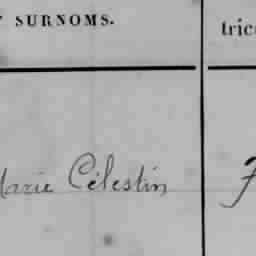 SURNOMS. tric
Marie Célestin